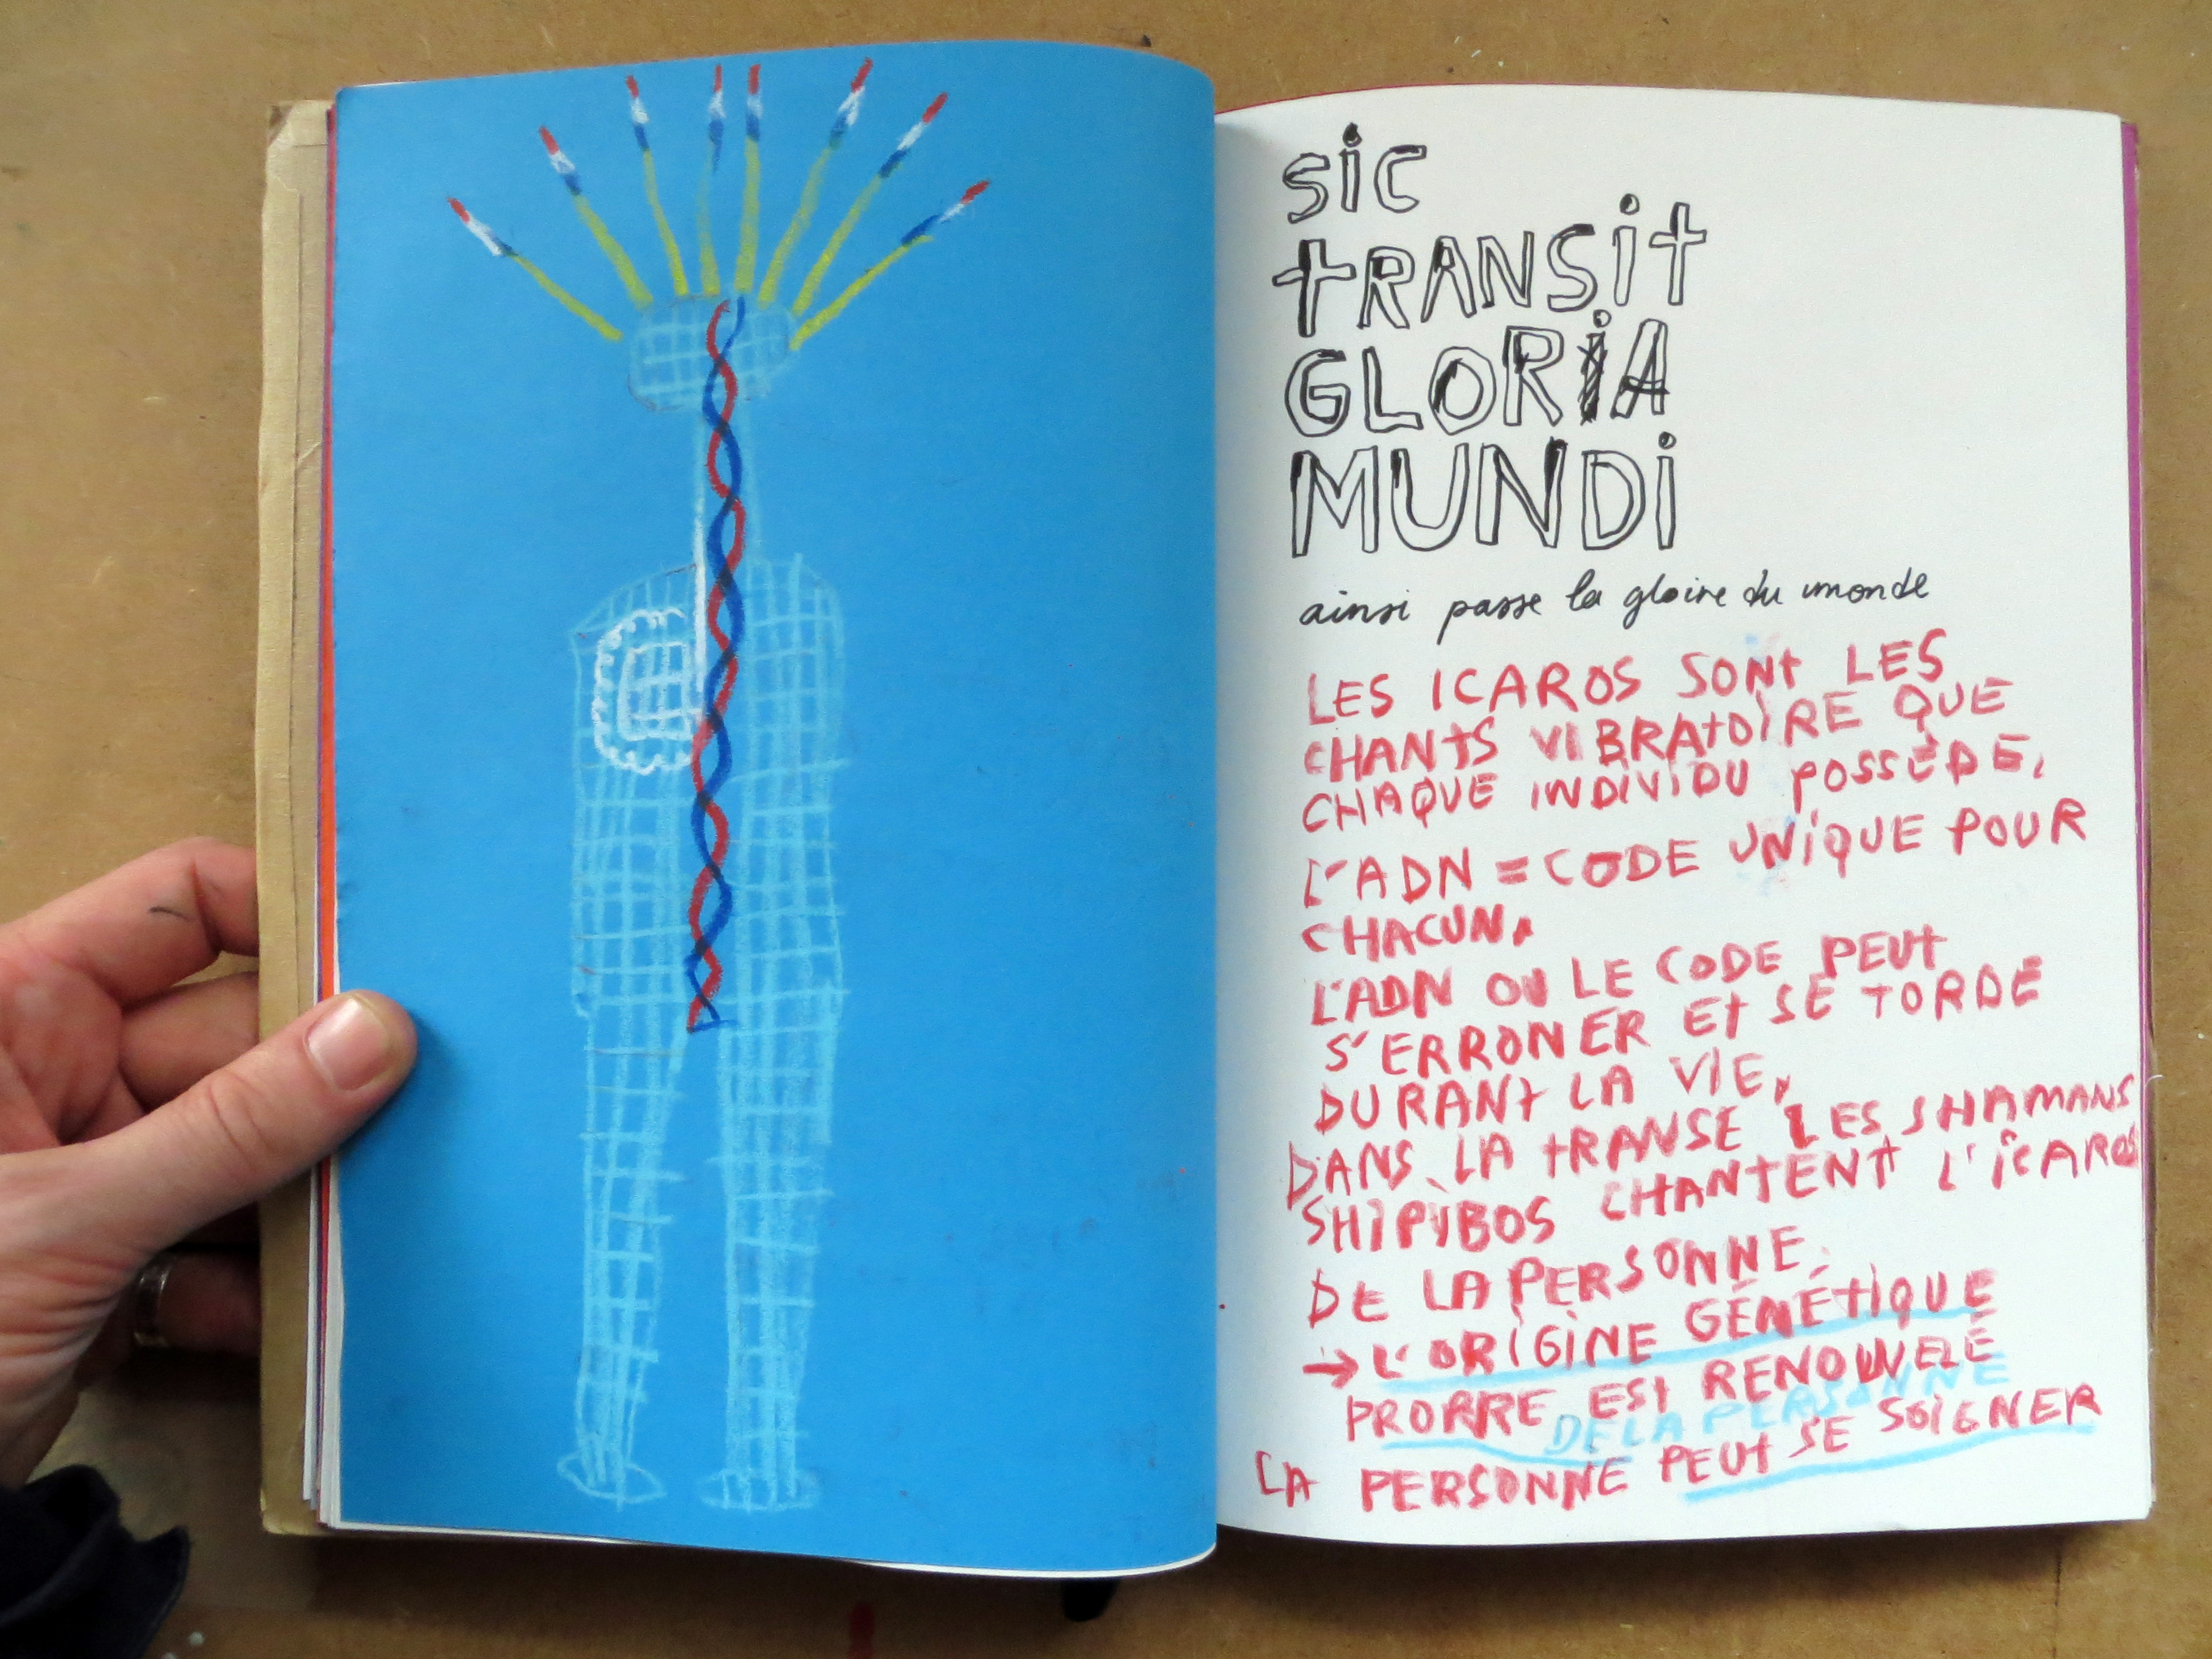 sic
tRANSit
GLORiA
MUNDi
ainsi passe la gloire du monde
LES ICAROS SONt LES
CHANtS VIBRAtOIRE QUE
CHAQUE INDIVIDU POSSÈDE,
L'ADN = CODE UNiQUE POUR
CHACUN.
L'ADN OU LE CODE PEUt
S'ERRONER Et SE TORDE
DURANt LA VIE,
DANS LA tRANSE LES SHAMANS
SHIPiBOS CHANTENt L'iCAROS
DE LA PERSONNE.
→ L'ORiGiNE GÉNÉtiQUE
PROPRE ESt RENOUVELÉ
DE LA PERSONNE
LA PERSONNE PEUt SE SOiGNER